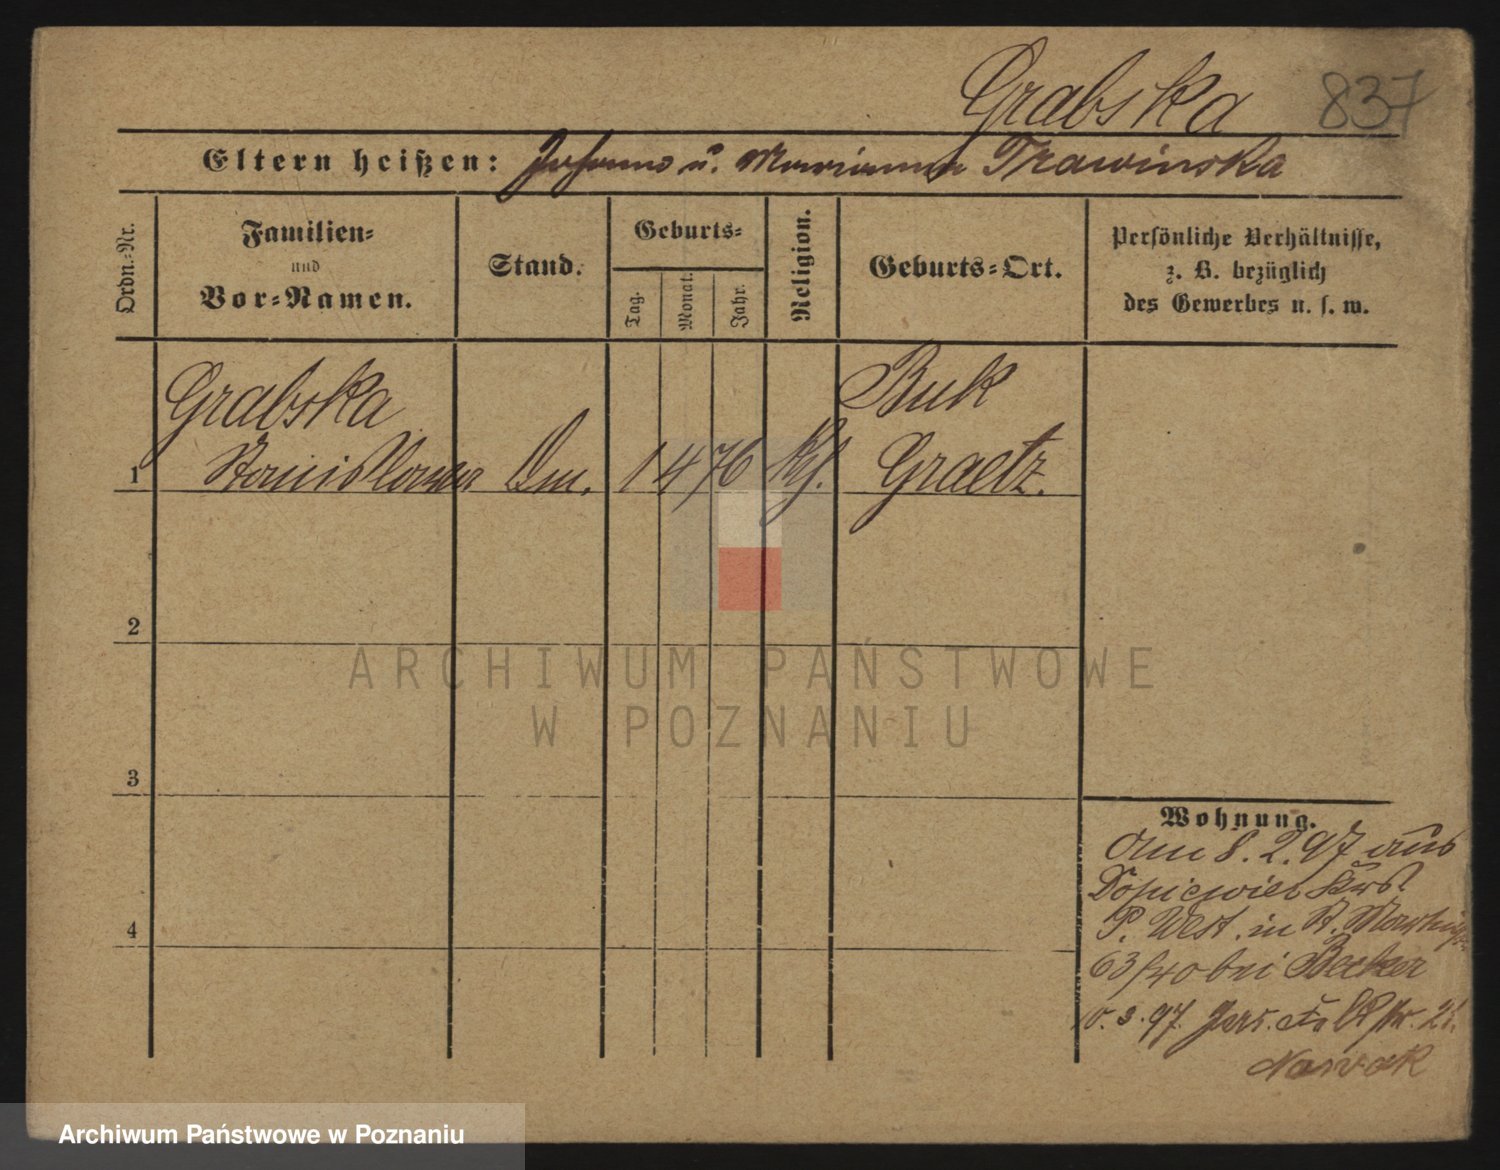 Grabska 837
Eltern heißen: Johann u. Marianna Trawinska
Ordn.-Nr.
Familien-
und
Vor-Namen.
Stand.
Geburts-
Tag.
Monat.
Jahr.
Religion.
Geburts-Ort.
Persönliche Verhältnisse,
z. B. bezüglich
des Gewerbes u. s. w.
Grabska Buk
1 Stanislawa Dm. 1 4 76 Kh. Graetz.
2
3
4
ARCHIWUM PAŃSTWOWE
W POZNANIU
Wohnung.
am 8. 2. 97 aus
P. West. in St.
63/40 bei Becker
10. 3. 97.
Nowak
Archiwum Państwowe w Poznaniu